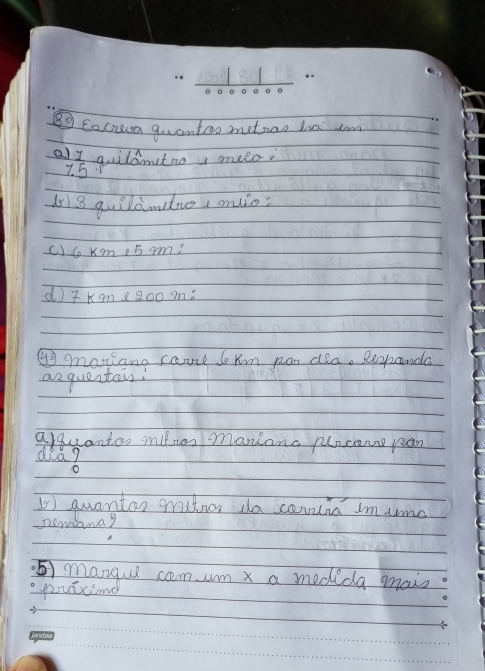 3º) Escreva quantos metros há em
a) 1 quilômetro e meio:
1.5
b) 3 quilômetro e meio:
c) 6 Km e 5 m:
d) 7 Km e 200 m:
4º) Mariana corre 6 Km por dia. Responda
as questois:
a) quantos metros Mariana percorre por
dia?
b) quantos metros ela correrá em uma
semana?
5) marque com um x a medida mais
próximo
jandaia